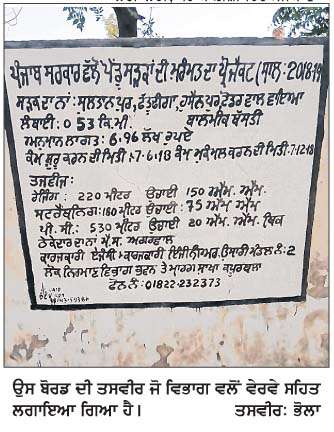 ਪੰਜਾਬ ਸਰਕਾਰ ਵੱਲੋਂ ਪੇਂਡੂ ਸੜਕਾਂ ਦੀ ਮੁਰੰਮਤ ਦਾ ਪ੍ਰੋਜੈਕਟ (ਸਾਲ: 2018-19
ਸੜਕ ਦਾ ਨਾਂ: ਸੁਲਤਾਨਪੁਰ, ਫੱਤੂਢੀਂਗਾ, ਹੁਸੈਨਪੁਰ ਦੂਲੋਵਾਲ ਵਾਇਆ
ਲੰਬਾਈ: 0.53 ਕਿ.ਮੀ. ਬਾਲਮੀਕ ਬਸਤੀ
ਅਨੁਮਾਨ ਲਾਗਤ: 6.96 ਲੱਖ ਰੁਪਏ
ਕੰਮ ਸ਼ੁਰੂ ਕਰਨ ਦੀ ਮਿਤੀ: 7-6-18 ਕੰਮ ਮੁਕੰਮਲ ਕਰਨ ਦੀ ਮਿਤੀ: 7-12-18
ਤਜਵੀਜ:
ਰੇਜਿੰਗ: 220 ਮੀਟਰ ਉਚਾਈ 150 ਐੱਮ.ਐੱਮ.
180 ਮੀਟਰ ਉਚਾਈ: 75 ਐੱਮ.ਐੱਮ
ਪੀ.ਸੀ.: 530 ਮੀਟਰ ਉਚਾਈ 20 ਐੱਮ.ਐੱਮ. ਥਿਕ
ਠੇਕੇਦਾਰ ਦਾ ਨਾਂ: ਮੈ.ਸ. ਅਗਰਵਾਲ
ਕਾਰਜਕਾਰੀ ਏਜੰਸੀ: ਕਾਰਜਕਾਰੀ ਇੰਜੀਨੀਅਰ, ਉਸਾਰੀ ਮੰਡਲ ਨੰ: 2
ਲੋਕ ਨਿਰਮਾਣ ਵਿਭਾਗ ਭਵਨ ਤੇ ਮਾਰਗ ਸ਼ਾਖਾ ਕਪੂਰਥਲਾ
ਫੋਨ ਨੰ: 01822-232373
ਉਸ ਬੋਰਡ ਦੀ ਤਸਵੀਰ ਜੋ ਵਿਭਾਗ ਵਲੋਂ ਵੇਰਵੇ ਸਹਿਤ
ਲਗਾਇਆ ਗਿਆ ਹੈ। ਤਸਵੀਰ: ਭੋਲਾ